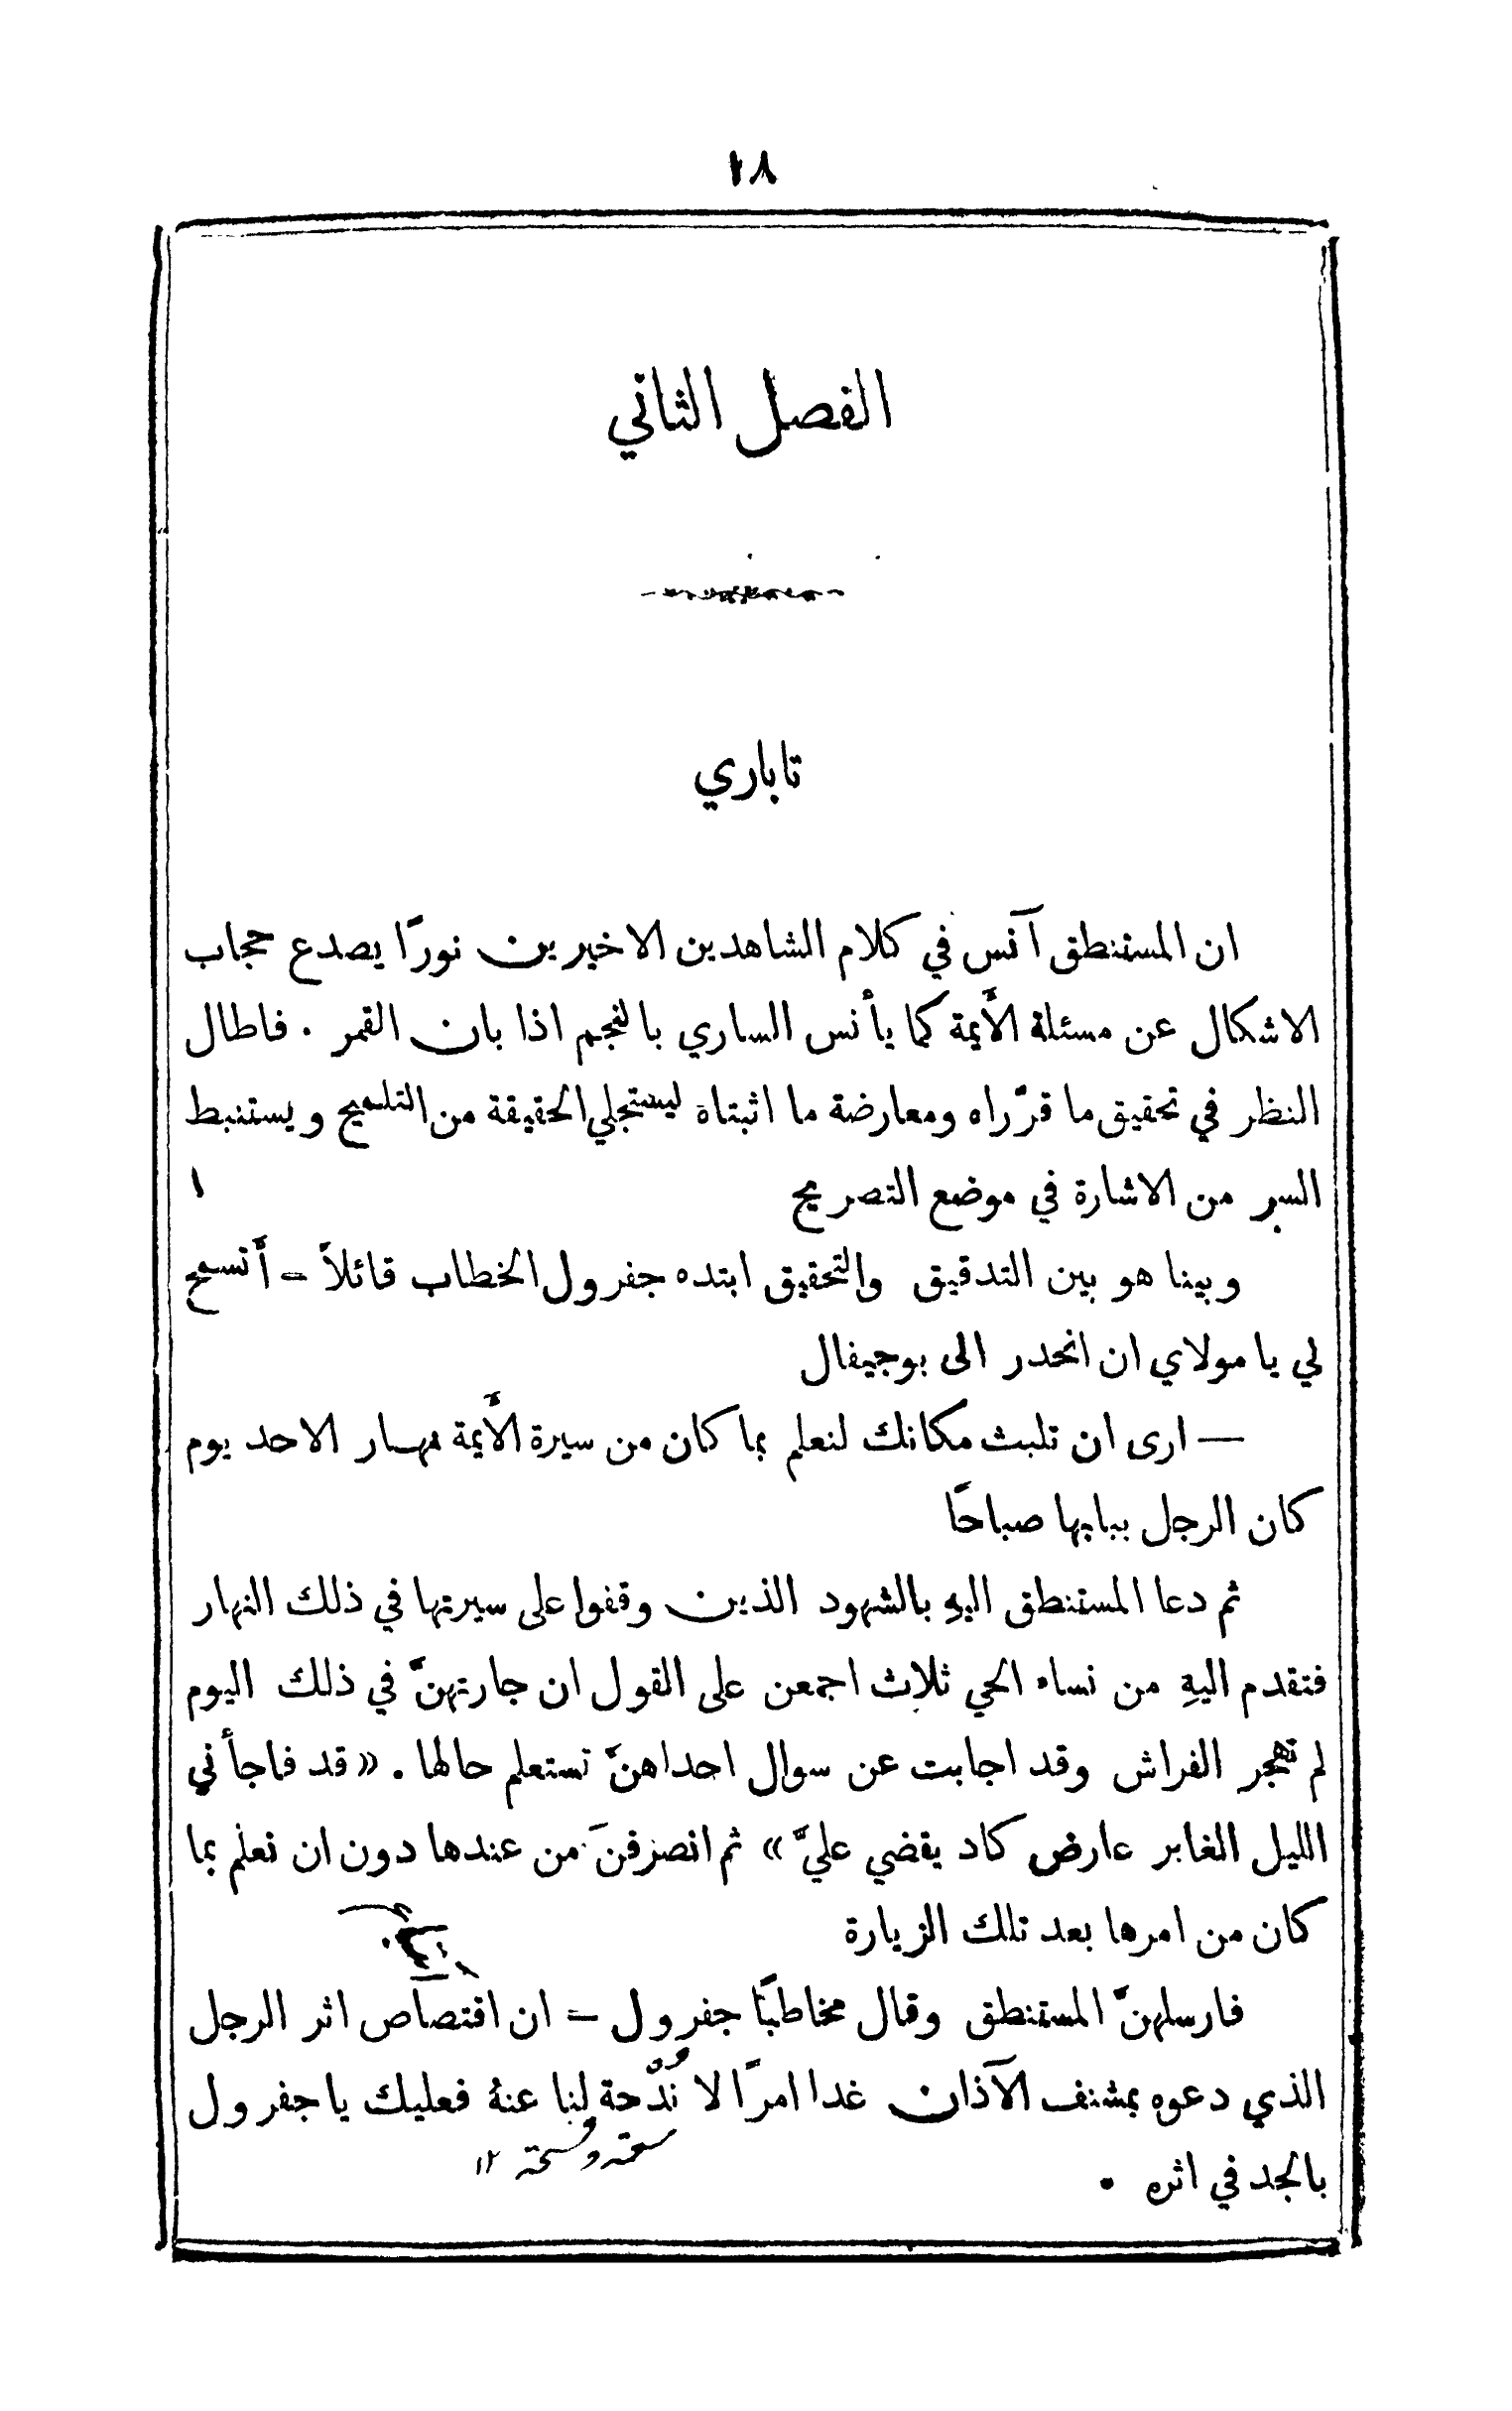 ١٨
الفصل الثاني
تاباري
ان المستنطق آنس في كلام الشاهدين الاخيرين نورًا يصدع حجاب
الاشكال عن مسئلة الأَيمة كما يأنس الساري بالنجم اذا بان القمر . فاطال
النظر في تحقيق ما قرّراه ومعارضة ما اثبتاه ليستجلي الحقيقة من التلميح ويستنبط
السر من الاشارة في موضع التصريح
وبينا هو بين التدقيق والتحقيق ابتده جفرول الخطاب قائلاً – أَتسمح
لي يا مولاي ان انحدر الى بوجيفال
— ارى ان تلبث مكانك لنعلم بما كان من سيرة الأَيمة نهار الاحد يوم
كان الرجل ببابها صباحًا
ثم دعا المستنطق اليهِ بالشهود الذين وقفوا على سيرتها في ذلك النهار
فتقدم اليهِ من نساء الحي ثلاث اجمعن على القول ان جارتهنَّ في ذلك اليوم
لم تهجر الفراش وقد اجابت عن سوال احداهنَّ تستعلم حالها . « قد فاجأني
الليل الغابر عارض كاد يقضي عليَّ » ثم انصرفنَ من عندها دون ان نعلم بما
كان من امرها بعد تلك الزيارة
فارسلهنَّ المستنطق وقال مخاطبًا جفرول – ان اقتصاص اثر الرجل
الذي دعوه بمشنف الآذان غدا امرًا لا نُدْحة لنا عنهُ فعليك يا جفرول
سعة وفسحة ١٢
بالجد في اثره .